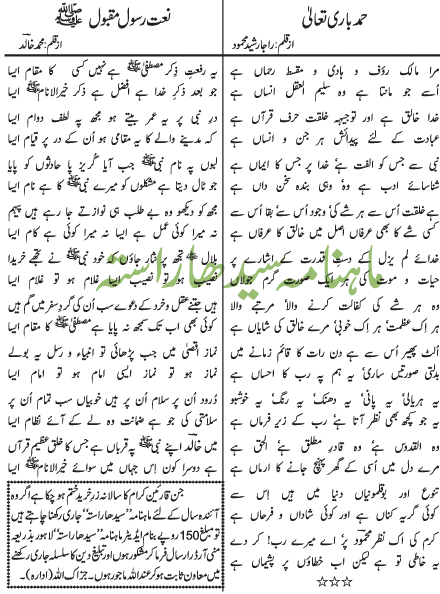 حمد باری تعالیٰ
از قلم: راجا رشید محمود
مرا مالک رؤف و ہادی و مقسط رحماں ہے
اُسے جو مانتا ہے وہ سلیم العقل انساں ہے
خدا خالق ہے اور توجیہہ خلقت حرف قرآں ہے
عبادت کے لئے پیدائش ہر جن و انساں ہے
نبی سے جس کو الفت ہے خدا پر جس کا ایماں ہے
شناسائے ادب ہے وہ وہی بندہ سخن داں ہے
ہے خلقت اُس سے ہر شے کی وجود اُس سے بقا اُس سے
کسی شے کا بھی عرفاں اصل میں خالق کا عرفاں ہے
خدائے لم یزل کے دست قدرت کے اشارے پر
حیات و موت کی ہر ایک صورت گرم جولاں ہے
وہ ہر شے کی کفالت کرنے والا مرجئے والا
ہر اِک عظمت ہر اِک خوبی مرے خالق کی شایاں ہے
الٹ پھیر اُس سے ہے دن رات کا قائم زمانے میں
بدلتی صورتیں ساری یہ ہم پہ رب کا احساں ہے
یہ ہریالی یہ پانی یہ دھنک یہ رنگ یہ خوشبو
یہ جو کچھ بھی نظر آتا ہے رب کے زیر فرماں ہے
وہ القدوس ہے وہ قادر مطلق ہے الحق ہے
مرے دل میں اُسی کے گھر پہنچ جانے کا ارماں ہے
تنوع اور بوقلمونیاں دنیا میں ہیں اس سے
کوئی گریہ کناں ہے اور کوئی شاداں و فرحاں ہے
کرم کی اک نظر محمود پر اے میرے رب! کر دے
یہ خاطی تو ہے لیکن اب خطاؤں پر پشیماں ہے
☆☆☆
نعت رسول مقبول ﷺ
از قلم: محمد خالد
یہ رفعتِ ذِکر مصطفیٰﷺ ہے نہیں کسی کا مقام ایسا
جو بعد ذِکر خدا ہے افضل ہے ذکر خیرالانامﷺ ایسا
در نبی پر یہ عمر بیتے ہو مجھ پہ لطف دوام ایسا
کہ مدینے والے کا یہ مقامی ہو اُن کے در پر قیام ایسا
لبوں پہ نام نبیﷺ جب آیا گریز پا حادثوں کو پایا
جو ٹال دیتا ہے مشکلوں کو میرے نبیﷺ کا ہے نام ایسا
مجھ کو دیکھو وہ بے طلب ہی نوازتے جا رہے ہیں پیہم
نہ میرا کوئی عمل ہے ایسا نہ میرا کوئی ہے کام ایسا
بلالؓ تجھ پر نثار جاؤں کہ خود نبیﷺ نے تجھے خریدا
نصیب ہو تو نصیب ایسا غلام ہو تو غلام ایسا
ہیں جتنے عقل و خرد کے دعوے سب اُن کی گرد سفر میں گم ہیں
کوئی بھی اب تک سمجھ نہ پایا ہے مصطفیٰﷺ کا مقام ایسا
نماز اقصیٰ میں جب پڑھائی تو انبیاء و رسل یہ بولے
نماز ہو تو نماز ایسی امام ہو تو امام ایسا
دُرود اُن پر سلام اُن پر ہیں خوبیاں سب تمام اُن پر
سلامتی کی جو ہے ضمانت وہ لے کے آئے نظام ایسا
میں خالد اپنے نبیﷺ پہ قرباں ہے جس کا خلق عظیم قرآں
ہے دوسرا کون اِس جہاں میں سوائے خیرالانامﷺ ایسا
جن قارئین کرام کا سالانہ زرِ خرید ختم ہو چکا ہے اگر وہ
آئندہ سال کے لئے ماہنامہ ”سیدھا راستہ“ جاری رکھنا چاہتے ہیں
تو مبلغ 150 روپے بنام ایڈیٹر ماہنامہ ”سیدھا راستہ“ لاہور بذریعہ
منی آرڈر ارسال فرما کر مشکور ہوں اور تبلیغ دین کا سلسلہ جاری رکھنے
میں معاون ثابت ہو کر عنداللہ ماجور ہوں۔ جزاک اللہ (ادارہ)۔
ماہنامہ سیدھا راستہ